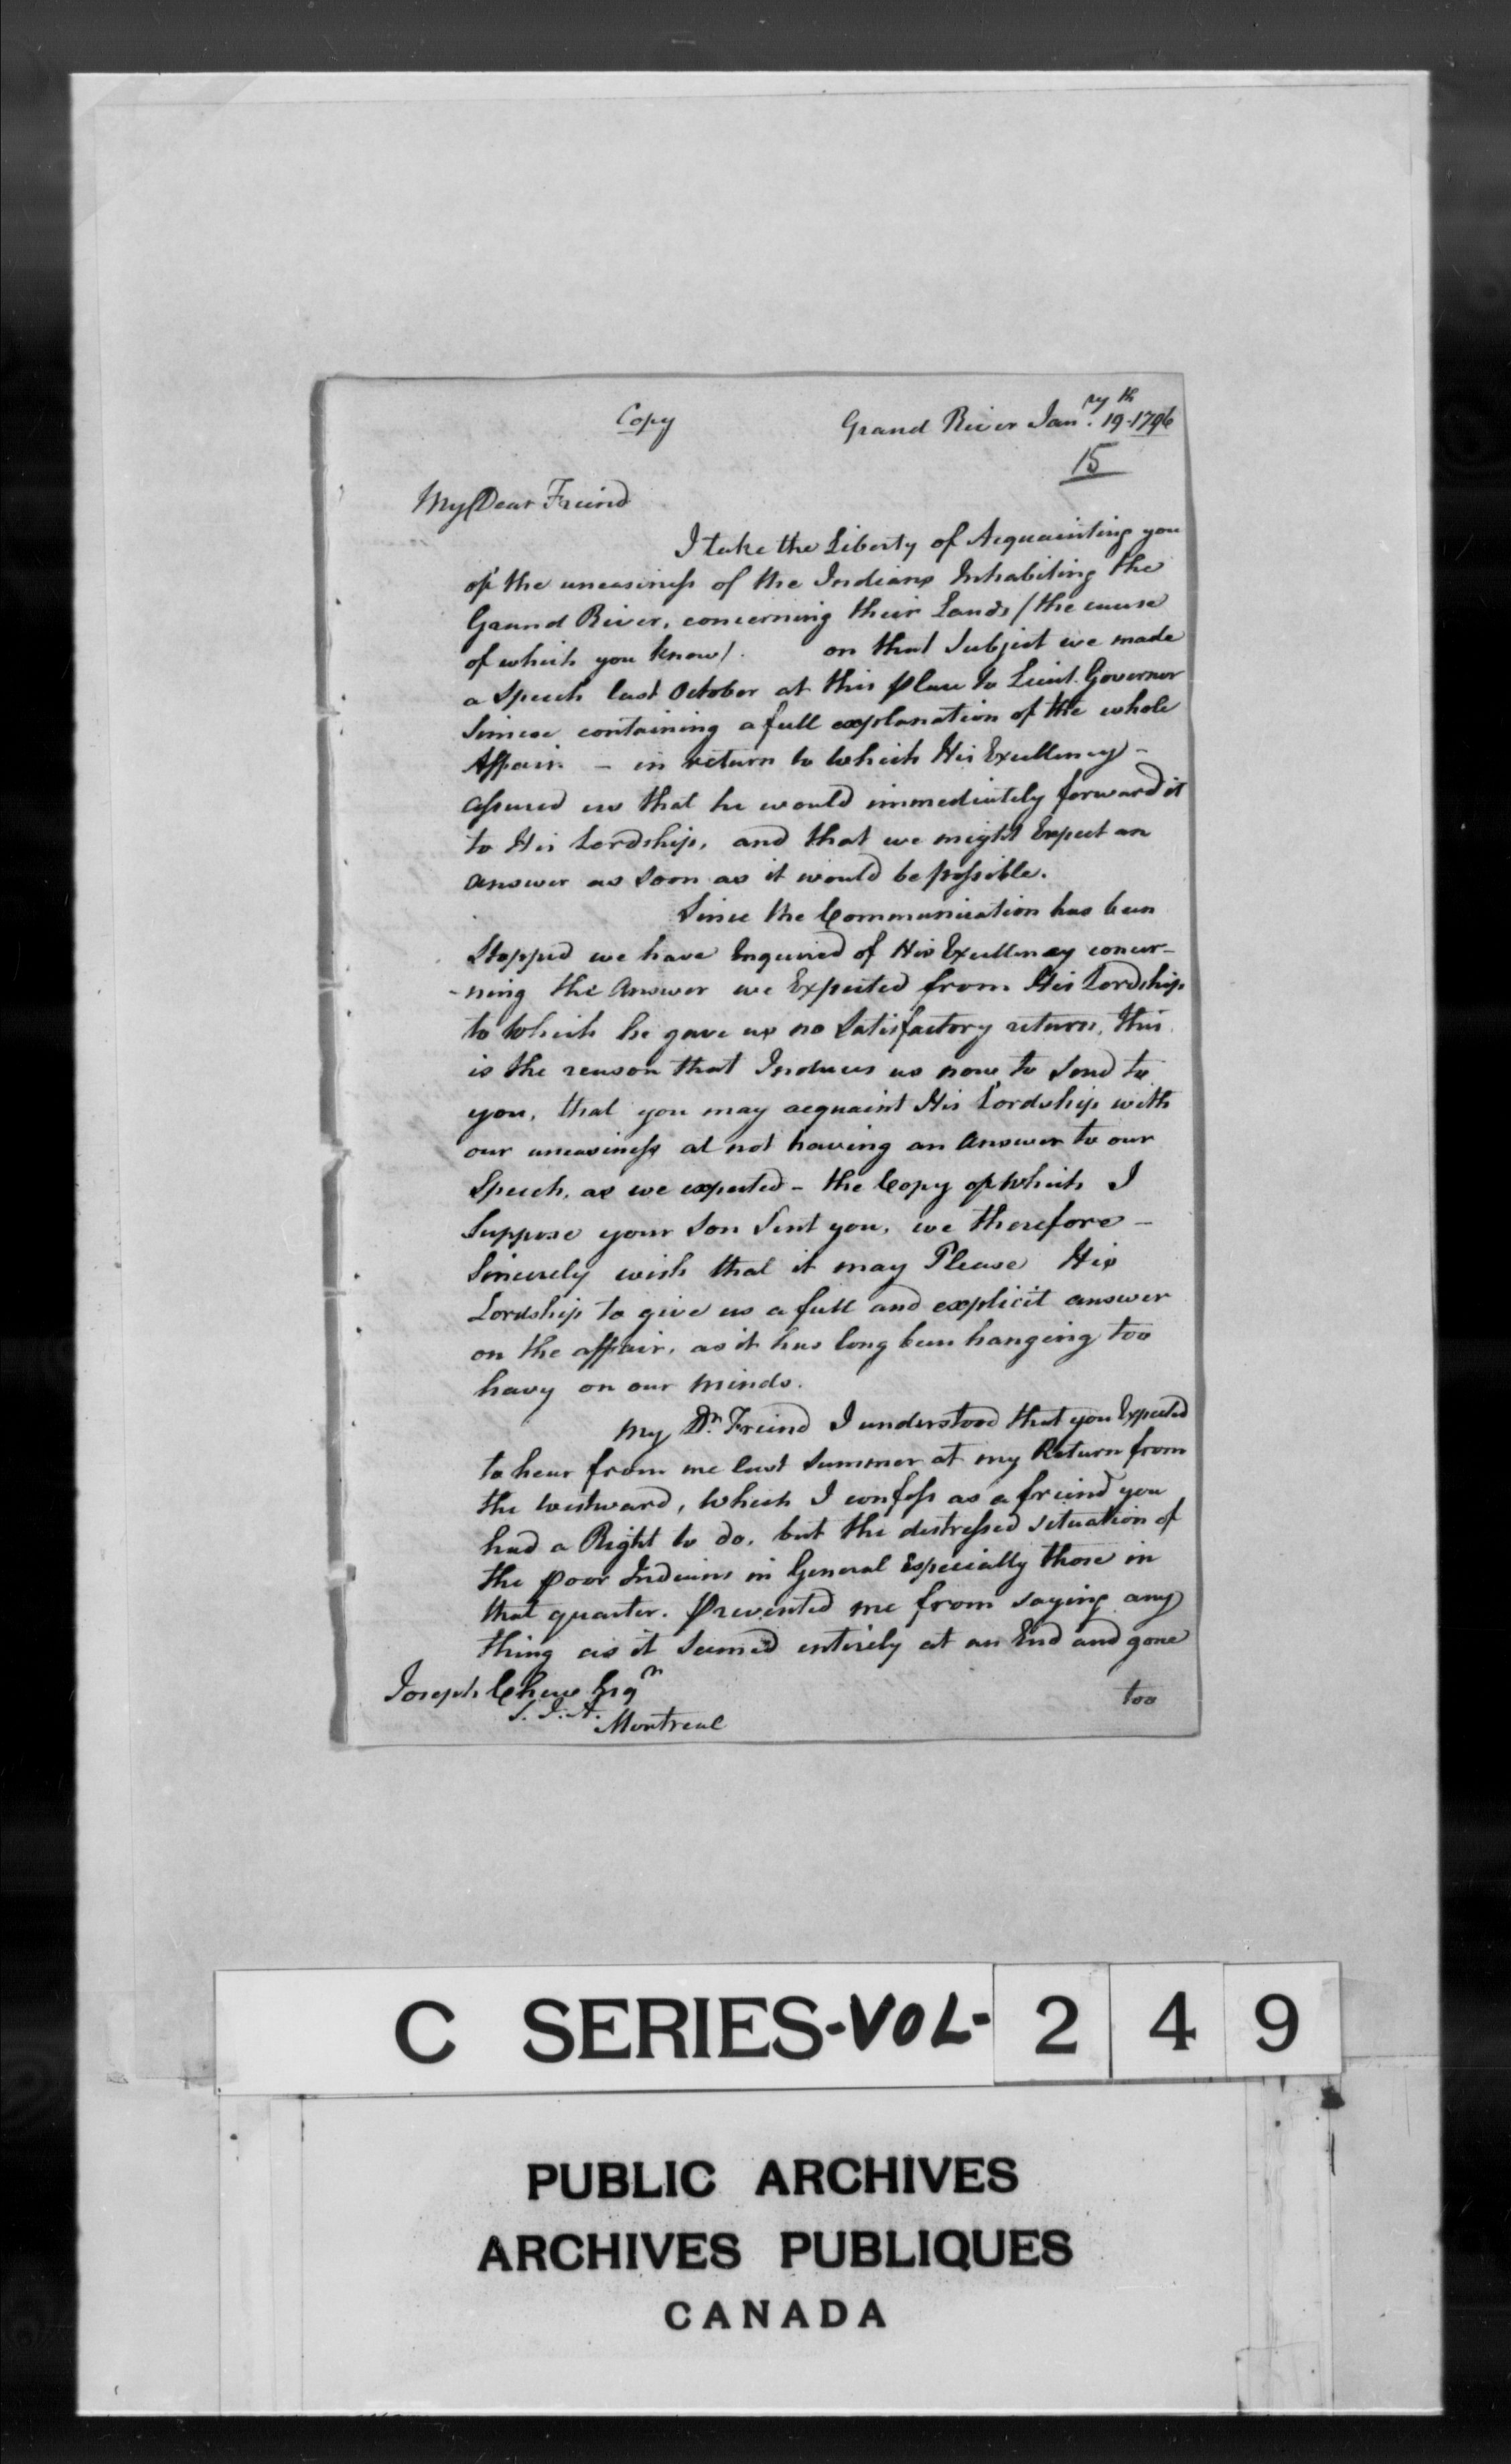 Copy
Grand River Janry. 19th 1796
15
My Dear Freind
I take the Liberty of Acquainting you
of the uneasiness of the Indians Inhabiting the
Grand River, concerning their Lands / the cause
of which you know /. on that Subject we made
a Speech last October at this place to Lieut. Governor
Simcoe containing a full explanation of the whole
Affair. - in return to which His Excellency -
assured us that he would immediately forward it
to His Lordship, and that we might Expect an
answer as soon as it would be possible.
Since the Communication has been
Stopped we have Enquired of His Excellency concer-
-ning the Answer we Expected from His Lordship
to which he gave us no Satisfactory return, this
is the reason that Induces us now to Send to
you, that you may acquaint His Lordship with
our uneasiness at not having an Answer to our
Speech, as we expected - the Copy of which I
Suppose your Son Sent you, we therefore -
Sincerely wish that it may Please His
Lordship to give us a full and explicit answer
on the affair, as it has long been hanging too
havy on our minds.
My Dr. Freind I understood that you Expected
to hear from me last Summer at my Return from
the Westward, which I confess as a freind you
had a Right to do, but the distressed situation of
the poor Indians in General Especially those in
that quarter. prevented me from saying any
thing as it Seemed entirely at an End and gone
Joseph Chew Esqr
S. I. A.
Montreal
too
C SERIES-VOL-249
PUBLIC ARCHIVES
ARCHIVES PUBLIQUES
CANADA